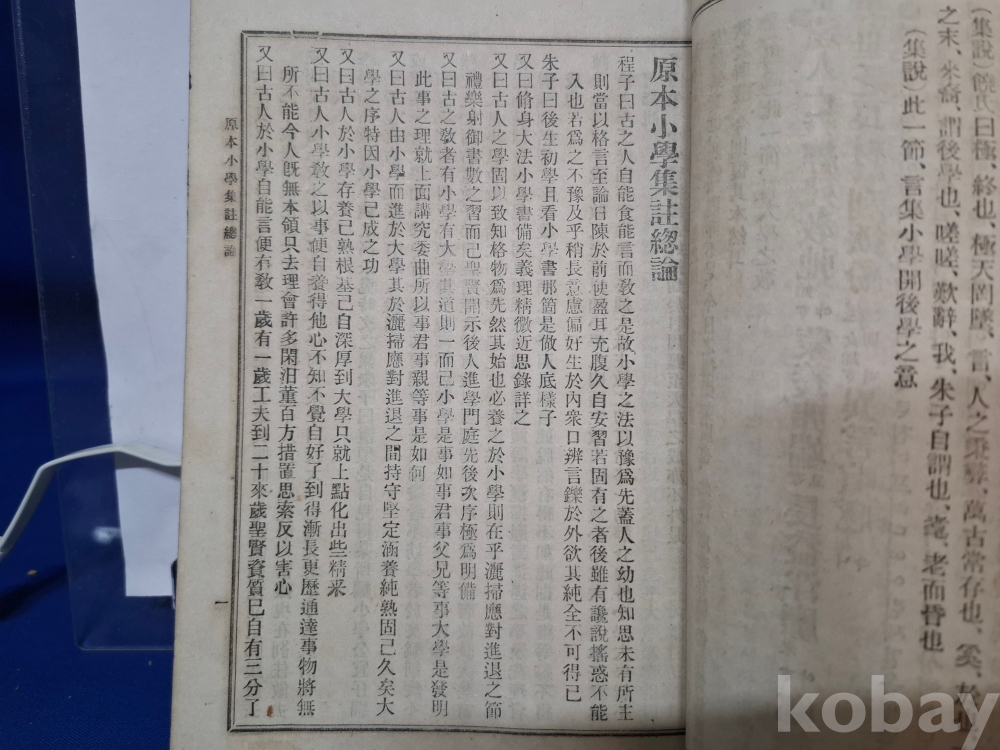 (集說)饒氏曰極、終也、極天罔墜、言、人之秉彝、萬古常存也、
之末、來裔、謂後學也、嗟嗟、歎辭、我、朱子自謂也、耄、老而昏也
(集說)此一節、言集小學開後學之意
原本小學集註總論
程子曰古之人自能食能言而敎之是故小學之法以豫爲先蓋人之幼也知思未有所主
則當以格言至論日陳於前使盈耳充腹久自安習若固有之者後雖有讒說搖惑不能
入也若爲之不豫及乎稍長意慮偏好生於內衆口辨言鑠於外欲其純全不可得已
朱子曰後生初學且看小學書那箇是做人底樣子
又曰脩身大法小學書備矣義理精微近思錄詳之
又曰古人之學固以致知格物爲先然其始也必養之於小學則在乎灑掃應對進退之節
禮樂射御書數之習而已聖賢開示後人進學門庭先後次序極爲明備
又曰古之敎者有小學有大學其道則一而已小學是事如事君事父兄等事大學是發明
此事之理就上面講究委曲所以事君事親等事是如何
又曰古人由小學而進於大學其於灑掃應對進退之間持守堅定涵養純熟固已久矣大
學之序特因小學已成之功
又曰古人於小學存養已熟根基已自深厚到大學只就上點化出些精釆
又曰古人小學敎之以事便自養得他心不知不覺自好了到得漸長更歷通達事物將無
所不能今人旣無本領只去理會許多閑汨董百方措置思索反以害心
又曰古人於小學自能言便有敎一歲有一歲工夫到二十來歲聖賢資質已自有三分了
原本小學集註總論
一
kobay